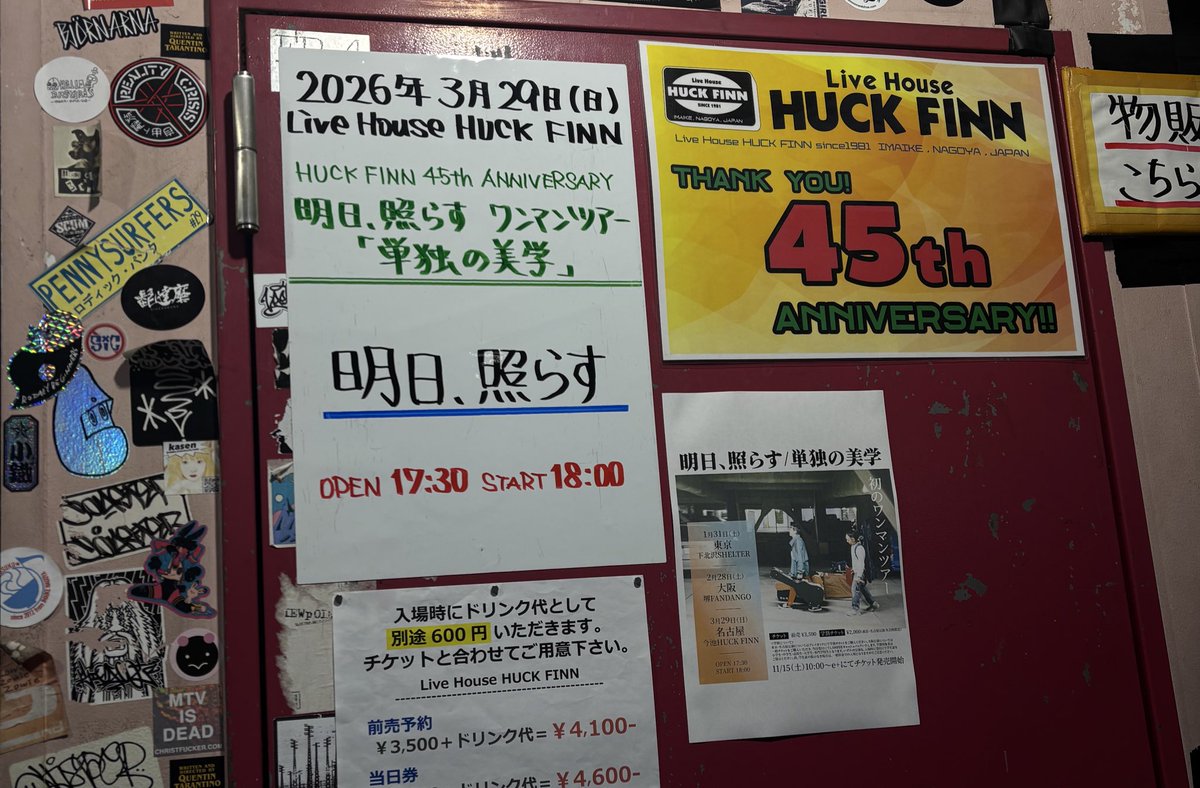 BJÖRNARNA
WRITTEN AND DIRECTED BY
QUENTIN TARANTINO
REALITY CRISIS
SCUM
PENNYSURFERS
ロディック・パンク
kasen
MTV
IS
DEAD
CHRISTFUCKER.COM
WRITTEN AND DIRECTED BY
QUENTIN TARANTINO
2026年3月29日(日)
Live House HUCK FINN
HUCK FINN 45th ANNIVERSARY
明日、照らす ワンマンツアー
「単独の美学」
明日、照らす
OPEN 17:30 START 18:00
入場時にドリンク代として
別途600円いただきます。
チケットと合わせてご用意下さい。
Live House HUCK FINN
前売予約
¥3,500+ドリンク代=¥4,100-
当日券
ドリンク代=¥4,600-
Live House
HUCK FINN
SINCE 1981
IMAIKE, NAGOYA, JAPAN
Live House
HUCK FINN
Live House HUCK FINN since1981 IMAIKE , NAGOYA , JAPAN
THANK YOU!
45th
ANNIVERSARY!!
物販
こちら
明日、照らす/単独の美学
初のワンマンツアー
1月31日(土)
東京
下北沢SHELTER
2月28日(土)
大阪
堺FANDANGO
3月29日(日)
名古屋
今池HUCK FINN
OPEN 17:30
START 18:00
チケット 前売 ¥3,500
11/15(土)10:00〜e+にてチケット発売開始